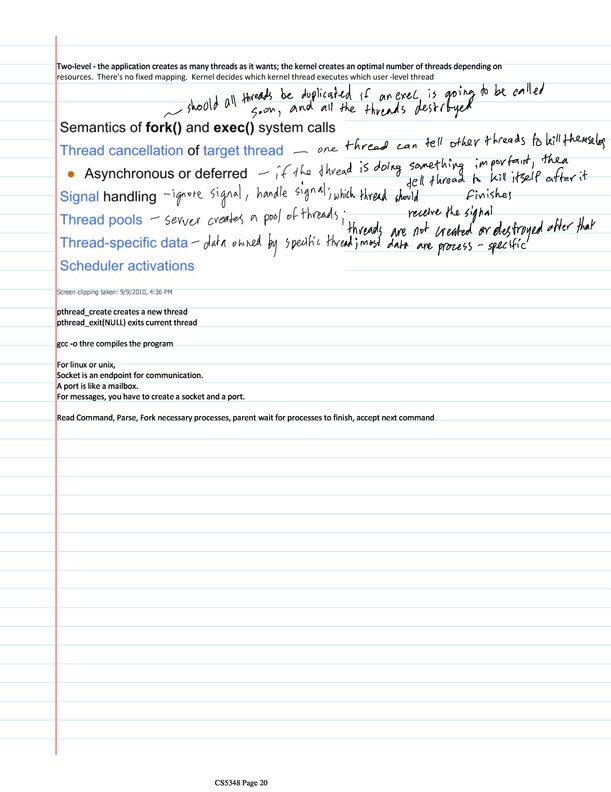 Two-level - the application creates as many threads as it wants; the kernel creates an optimal number of threads depending on
resources. There's no fixed mapping. Kernel decides which kernel thread executes which user-level thread
~ should all threads be duplicated if an exec is going to be called
soon, and all the threads destroyed
Semantics of fork() and exec() system calls
Thread cancellation of target thread — one thread can tell other threads to kill themselves
• Asynchronous or deferred — if the thread is doing something important, then
tell thread to kill itself after it
finishes
Signal handling — ignore signal, handle signal; which thread should
receive the signal
Thread pools — server creates a pool of threads;
threads are not created or destroyed after that
Thread-specific data — data owned by specific thread; most data are process-specific
Scheduler activations
Screen clipping taken: 9/9/2010, 4:36 PM
pthread_create creates a new thread
pthread_exit(NULL) exits current thread
gcc -o thre compiles the program
For linux or unix,
Socket is an endpoint for communication.
A port is like a mailbox.
For messages, you have to create a socket and a port.
Read Command, Parse, Fork necessary processes, parent wait for processes to finish, accept next command
CS5348 Page 20